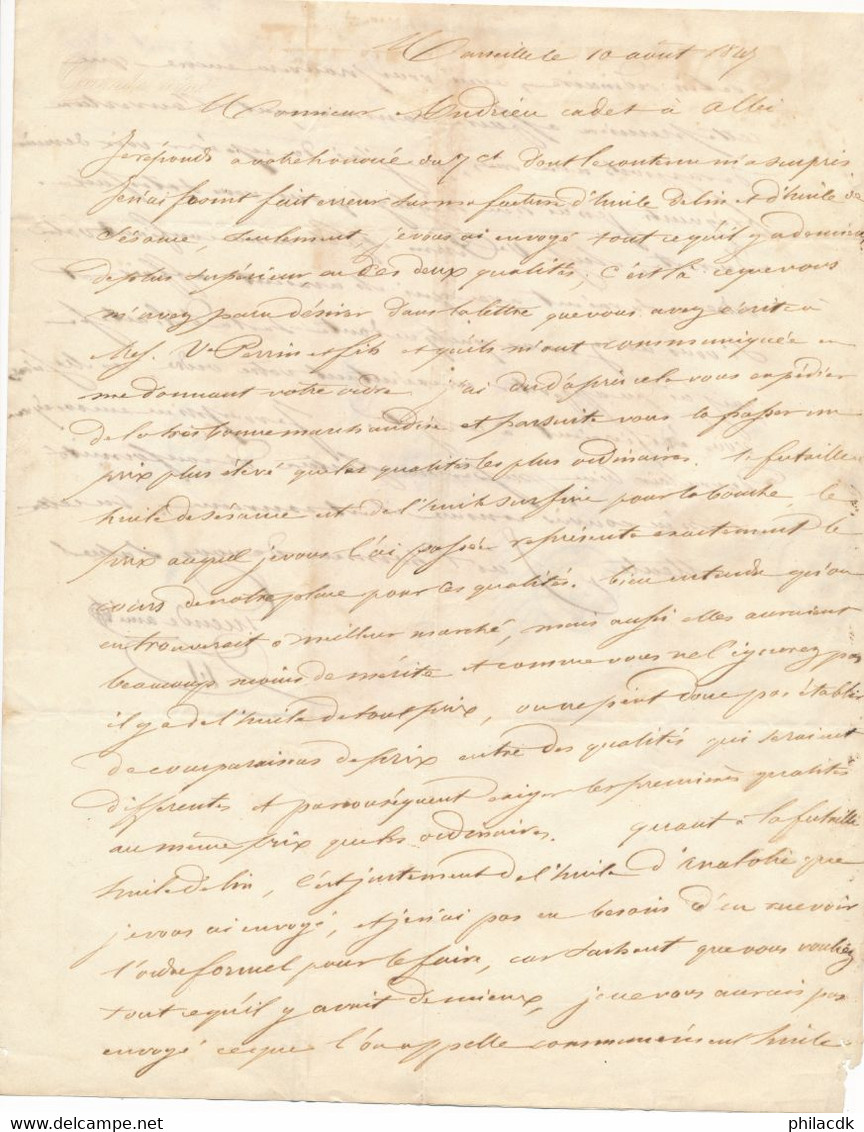 Marseille le 10 août 184
Monsieur Andrieu cadet à Albi
Je réponds a votre honoré du 7 ct dont le contenu m'a surpris
Je n'ai point fait erreur sur ma facture d'huile de lin et d'huile de
Sésame, seulement, je vous ai envoyé tout ce qu'il y a de mieux
de plus supérieur en des deux qualités; c'est là ce que vous
m'avez paru désirer dans la lettre que vous avez écrite a
Mes. Ve Perrin et fils et qu'ils m'ont communiquée en
me donnant votre ordre. j'ai du d'après cela vous expédier
de la très bonne marchandise et par suite vous la passer un
prix plus élevé que les qualités les plus ordinaires. la futaille
huile de sesame est de l'huile surfine pour la bouche, le
prix auquel je vous l'ai passée représente exactement le
cours de notre place pour les qualités. bien entendu qu'on
en trouverait a meilleur marché, mais aussi elles auraient
beaucoup moins de mérite et comme vous ne l'ignorez pas
il y a de l'huile de tout prix, on ne peut donc pas établir
de comparaison de prix entre des qualités qui seraient
differentes et par conséquent exiger les premières qualités
au même prix que les ordinaires. quant à la futaille
huile de lin, c'est justement de l'huile d'Anatolie que
je vous ai envoyé, et je n'ai pas eu besoin d'en recevoir
l'ordre formel pour le faire, car sachant que vous vouliez
tout ce qu'il y avait de mieux, je ne vous aurais pas
envoyé ce que l'on appelle communément huile
www.delcampe.net
philacdk